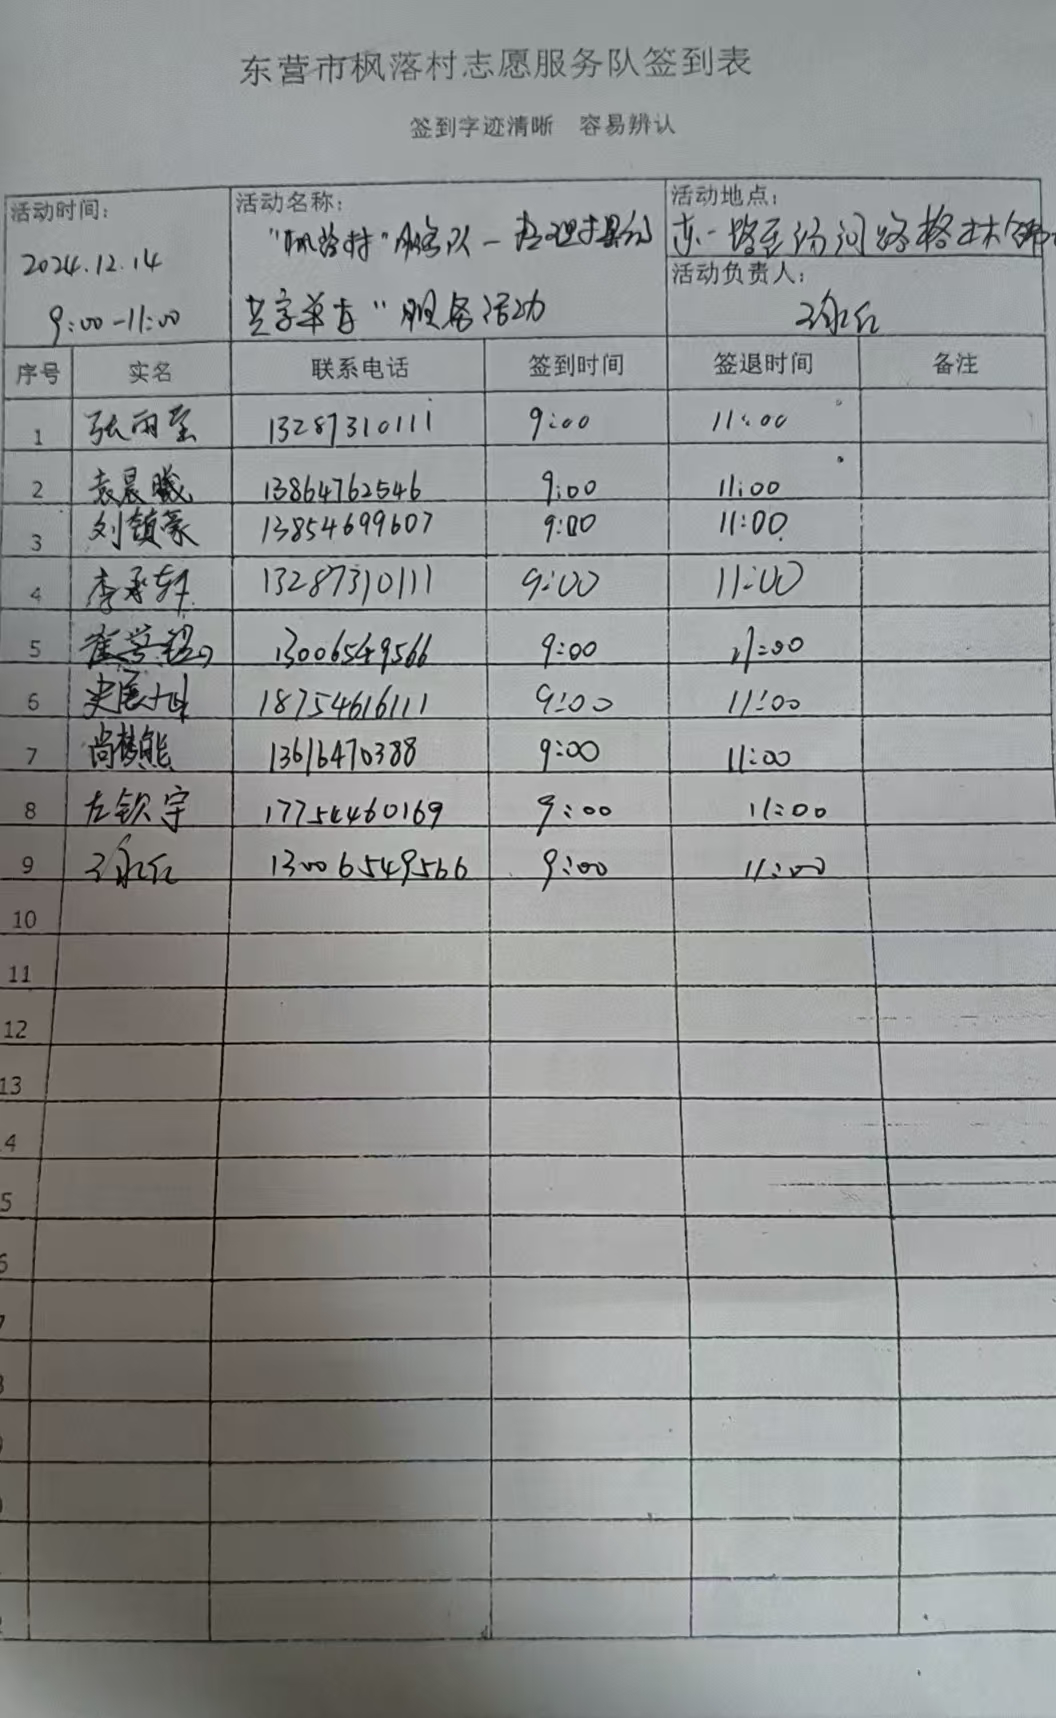 东营市枫落村志愿服务队签到表
签到字迹清晰 容易辨认
活动时间：
2024.12.14
9:00-11:00
活动名称：
"枫落村"服务队一
共享单车"服务活动
活动地点：
东一路
活动负责人：
序号 实名 联系电话 签到时间 签退时间 备注
1 张雨 13287310111 9:00 11:00
2 袁晨曦 13864762546 9:00 11:00
3 刘镇豪 13854699607 9:00 11:00
4 李承轩 13287310111 9:00 11:00
5 崔 13006549566 9:00 11:00
6 18754616111 9:00 11:00
7 尚梦能 13616470388 9:00 11:00
8 左钦宇 17754460169 9:00 11:00
9 13006549566 9:00 11:00
10
11
12
13
4
5
6
7